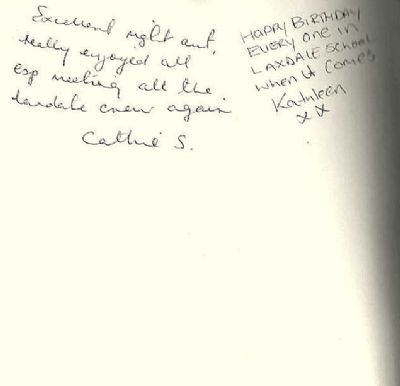 Excellent night out,
really enjoyed all
esp meeting all the
laxdale crew again
Cathie S.
HAPPY BIRTHDAY
EVERY one in
LAXDALE School
when it comes
Kathleen
x x